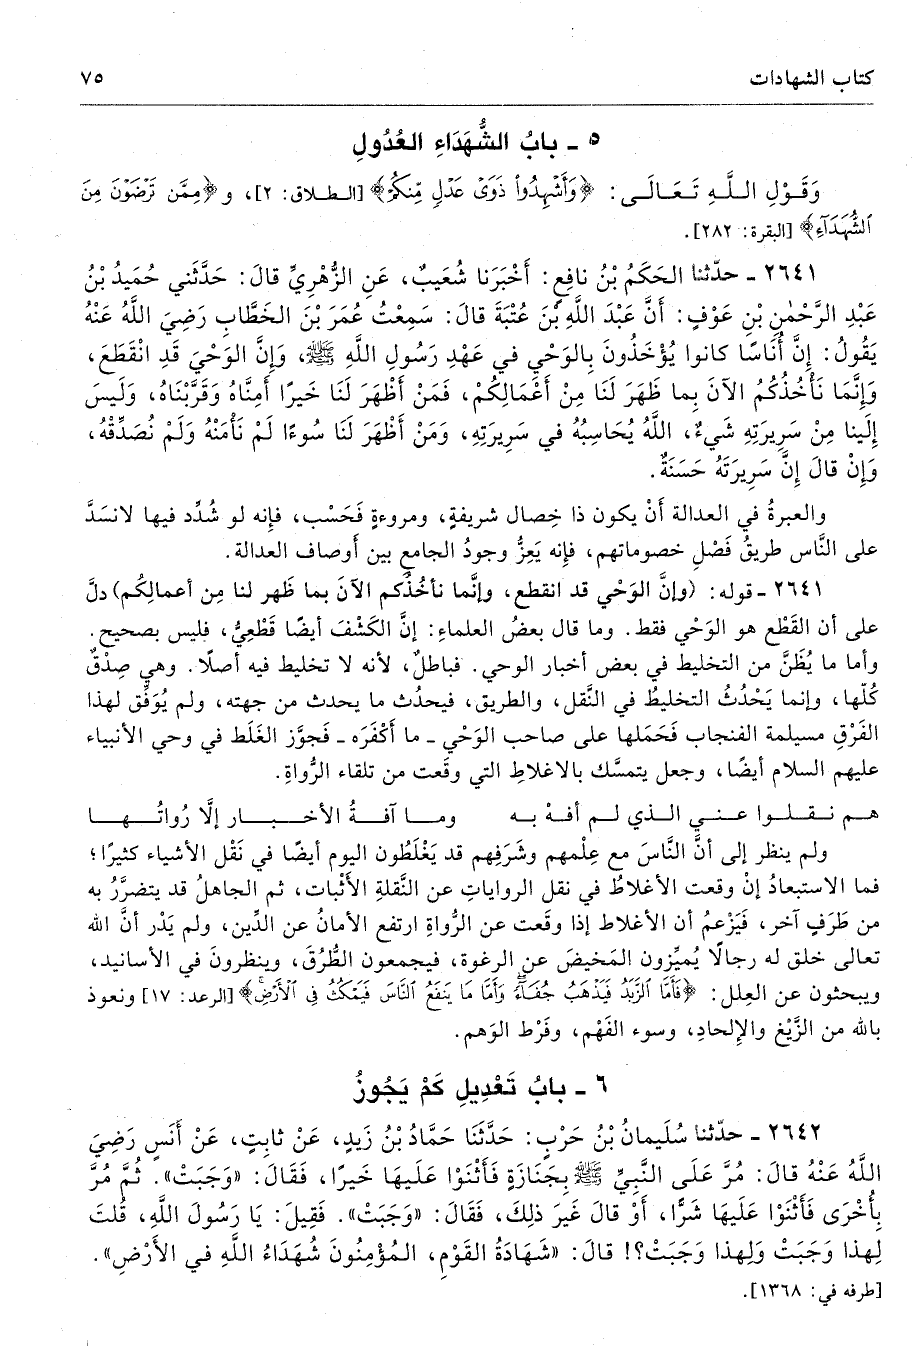 كتاب الشهادات ٧٥
٥ ـ بابُ الشُّهَدَاءِ العُدُولِ
وَقَوْلِ اللَّهِ تَعَالَى: ﴿وَأَشْهِدُوا۟ ذَوَىْ عَدْلٍ مِّنكُمْ﴾ [الطلاق: ٢]، و ﴿مِمَّن تَرْضَوْنَ مِنَ
ٱلشُّهَدَآءِ﴾ [البقرة: ٢٨٢].
٢٦٤١ ـ حدّثنا الحَكَمُ بْنُ نافِعٍ: أَخْبَرَنا شُعَيبٌ، عَنِ الزُّهْرِيِّ قالَ: حَدَّثَني حُمَيدُ بْنُ
عَبْدِ الرَّحْمٰنِ بْنِ عَوْفٍ: أَنَّ عَبْدَ اللَّهِ بْنَ عُتْبَةَ قالَ: سَمِعْتُ عُمَرَ بْنَ الخَطَّابِ رَضِيَ اللَّهُ عَنْهُ
يَقُولُ: إِنَّ أُنَاسًا كانوا يُؤْخَذُونَ بِالوَحْيِ في عَهْدِ رَسُولِ اللَّهِ ﷺ، وَإِنَّ الوَحْيَ قَدِ انْقَطَعَ،
وَإِنَّمَا نَأْخُذُكُمُ الآنَ بِما ظَهَرَ لَنَا مِنْ أَعْمَالِكُمْ، فَمَنْ أَظْهَرَ لَنَا خَيرًا أَمِنَّاهُ وَقَرَّبْنَاهُ، وَلَيسَ
إِلَينا مِنْ سَرِيرَتِهِ شَيءٌ، اللَّهُ يُحَاسِبُهُ في سَرِيرَتِهِ، وَمَنْ أَظْهَرَ لَنَا سُوءًا لَمْ نَأْمَنْهُ وَلَمْ نُصَدِّقْهُ،
وَإِنْ قالَ إِنَّ سَرِيرَتَهُ حَسَنَةٌ.
والعبرةُ في العدالة أَنْ يكون ذا خِصال شريفةٍ، ومروءةٍ فَحَسْب، فإِنه لو شُدِّد فيها لانسَدَّ
على النَّاس طريقُ فَصْلِ خصوماتهم، فإِنه يَعِزُّ وجودُ الجامع بين أَوصاف العدالة.
٢٦٤١ ـ قوله: (وإنَّ الوَحْي قد انقطع، وإنَّما نأخُذُكم الآنَ بما ظَهر لنا مِن أعمالِكُم) دلَّ
على أن القَطْع هو الوَحْي فقط. وما قال بعضُ العلماءِ: إنَّ الكَشْفَ أيضًا قَطْعِيٌّ، فليس بصحيح.
وأما ما يُظَنَّ من التخليط في بعض أخبار الوحي. فباطلٌ، لأنه لا تخليط فيه أصلًا. وهي صِدْقٌ
كُلّها، وإنما يَحْدُثُ التخليطُ في النَّقل، والطريق، فيحدُث ما يحدث من جهته، ولم يُوَفَّق لهذا
الفَرْقِ مسيلمة الفنجاب فَحَمَلها على صاحب الوَحْي ـ ما أَكْفَرَه ـ فَجوَّز الغَلَط في وحي الأنبياء
عليهم السلام أيضًا، وجعل يتمسَّك بالاغلاطِ التي وقَعت من تلقاء الرُّواةِ.
هم نقلوا عني الذي لم أفهْ به وما آفةُ الأخبار إلَّا رُواتُها
ولم ينظر إلى أنَّ النَّاسَ مع عِلْمهم وشَرَفِهم قد يَغْلَطُون اليوم أيضًا في نَقْل الأشياء كثيرًا؛
فما الاستبعادُ إنْ وقعت الأغلاطُ في نقل الرواياتِ عن النَّقلةِ الأَثْبات، ثم الجاهلُ قد يتضرَّرُ به
من طَرَفٍ آخر، فَيَزْعمُ أن الأغلاط إذا وقَعت عن الرُّواةِ ارتفع الأمانُ عن الدِّين، ولم يَدْر أنَّ الله
تعالى خلق له رجالًا يُميِّزون المَخيضَ عن الرغوة، فيجمعون الطُّرُقَ، وينظرونَ في الأسانيد،
ويبحثون عن العِلل: ﴿فَأَمَّا ٱلزَّبَدُ فَيَذْهَبُ جُفَآءً وَأَمَّا مَا يَنفَعُ ٱلنَّاسَ فَيَمْكُثُ فِى ٱلْأَرْضِ﴾ [الرعد: ١٧] ونعوذ
بالله من الزَّيْغ والإلحادِ، وسوء الفَهْم، وفَرْط الوَهم.
٦ ـ بابُ تَعْدِيلِ كَمْ يَجُوزُ
٢٦٤٢ ـ حدّثنا سُلَيمانُ بْنُ حَرْبٍ: حَدَّثَنَا حَمَّادُ بْنُ زَيدٍ، عَنْ ثابِتٍ، عَنْ أَنَسٍ رَضِيَ
اللَّهُ عَنْهُ قالَ: مُرَّ عَلَى النَّبِيِّ ﷺ بِجَنَازَةٍ فَأَثْنَوْا عَلَيهَا خَيرًا، فَقَالَ: «وَجَبَتْ». ثُمَّ مُرَّ
بِأُخْرَى فَأَثْنَوْا عَلَيهَا شَرًّا، أَوْ قالَ غَيرَ ذلِكَ، فَقَالَ: «وَجَبَتْ». فَقِيلَ: يَا رَسُولَ اللَّهِ، قُلتَ
لِهذا وَجَبَتْ وَلِهذا وَجَبَتْ؟! قالَ: «شَهَادَةُ القَوْمِ، المُؤْمِنُونَ شُهَدَاءُ اللَّهِ في الأَرْضِ».
[طرفه في: ١٣٦٨].